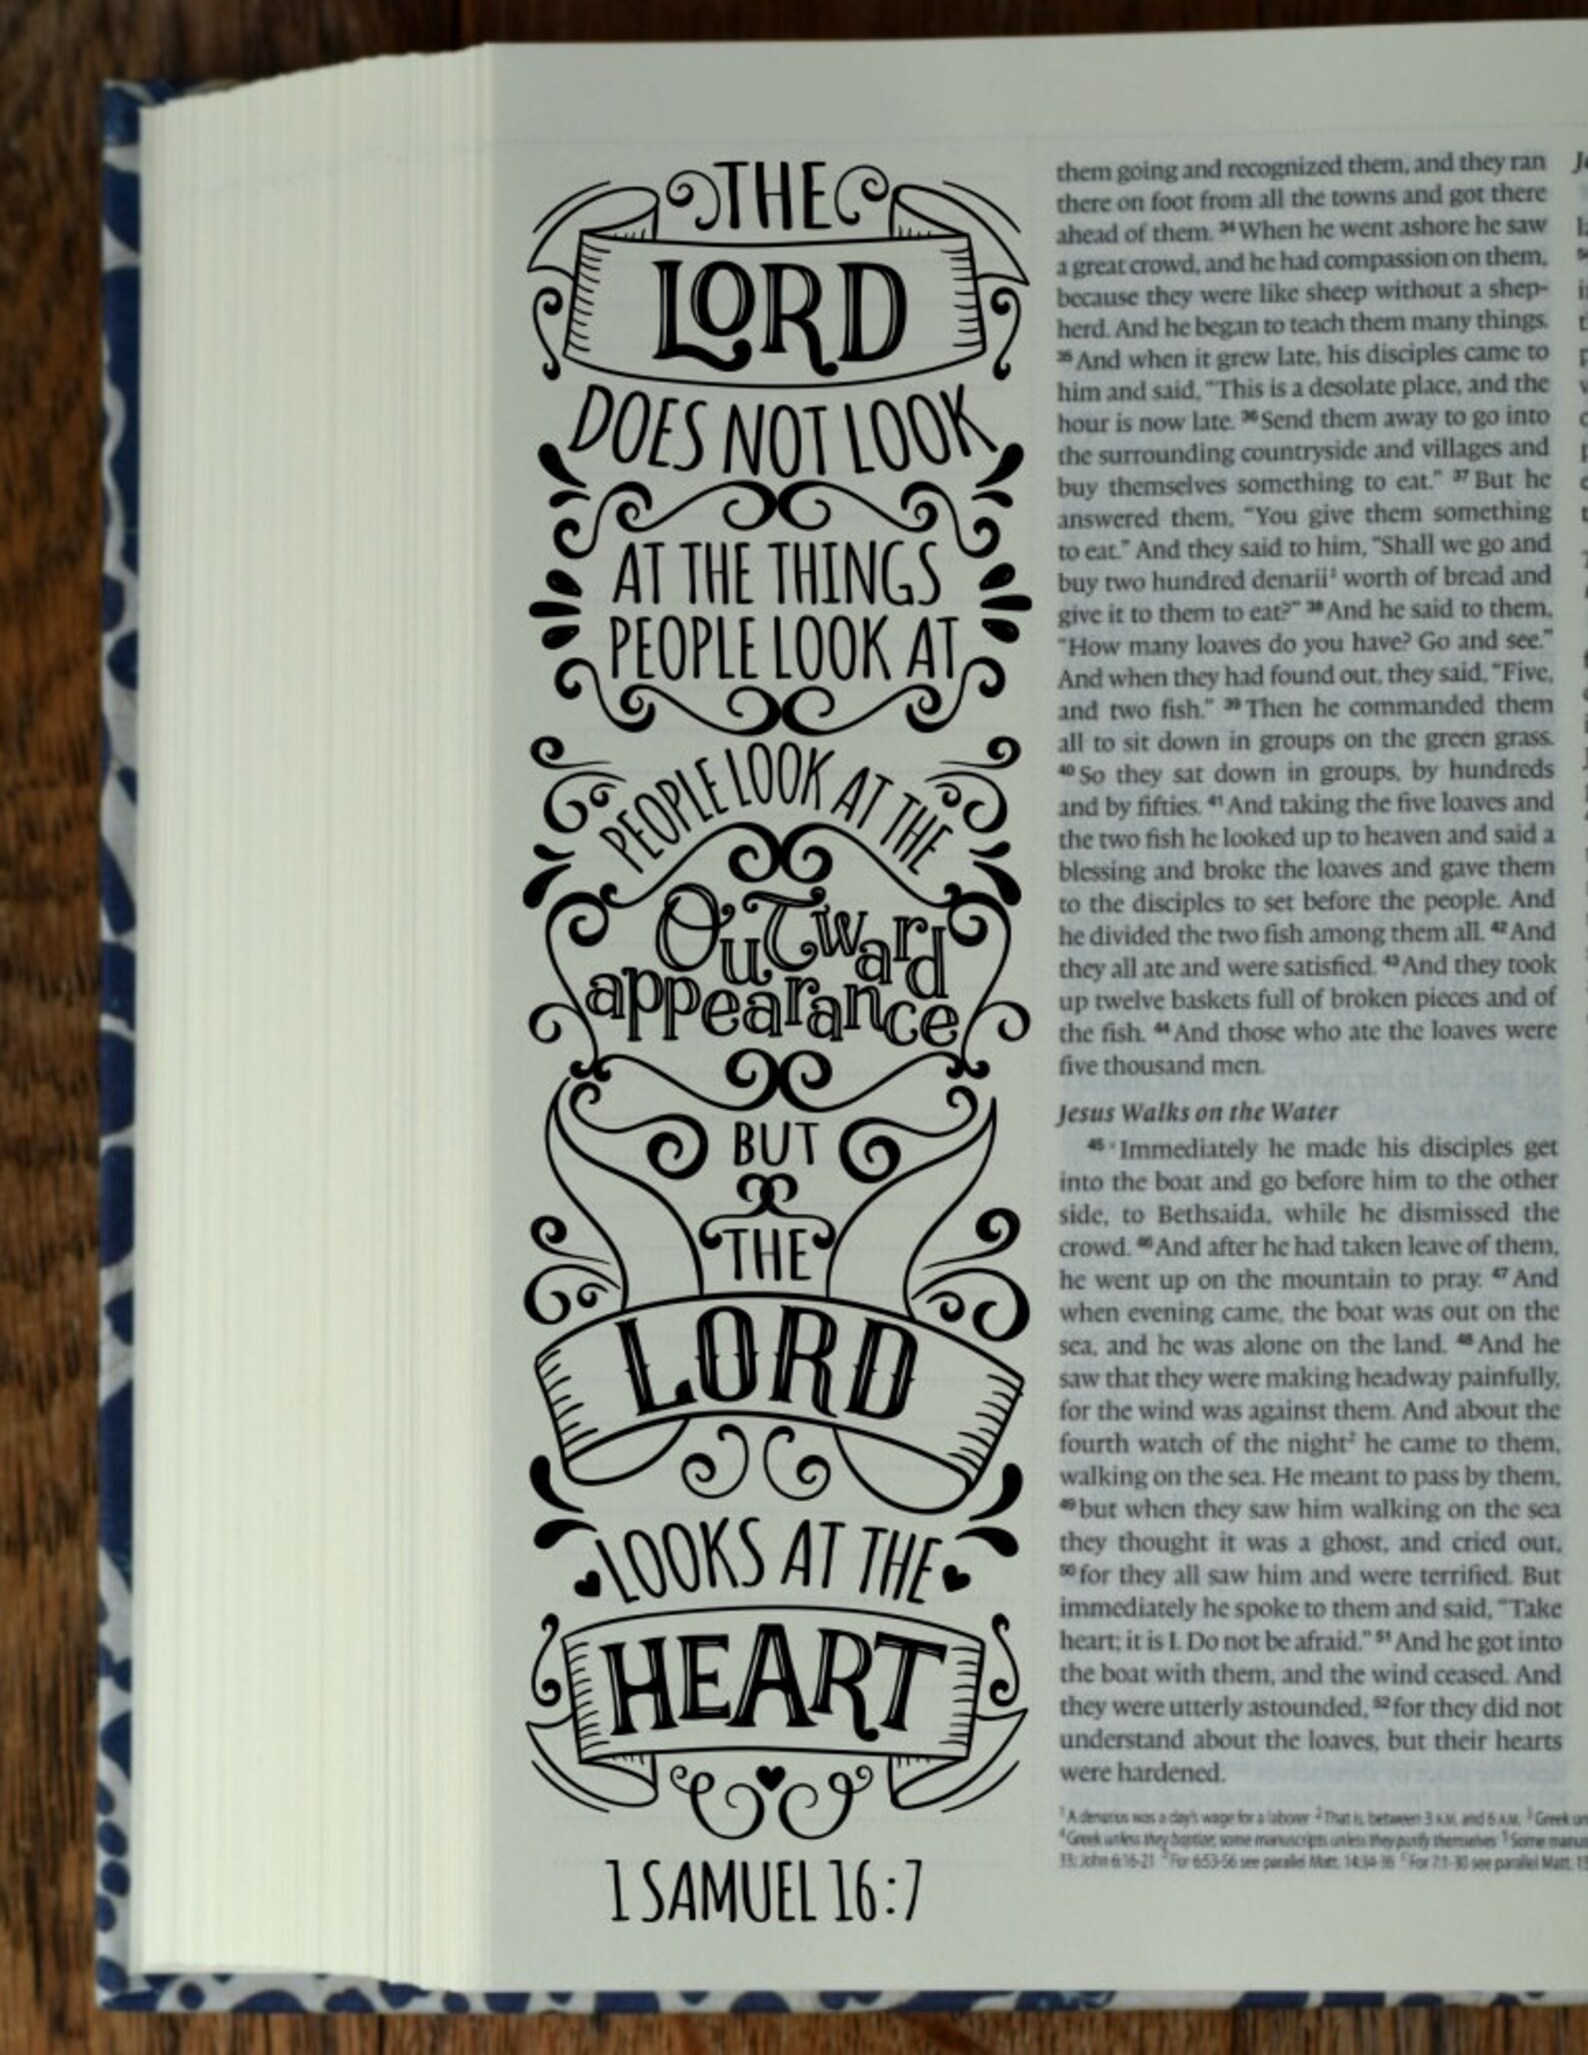 THE
LORD
DOES NOT LOOK
AT THE THINGS
PEOPLE LOOK AT
PEOPLE LOOK AT THE
OuTward
appearance
BUT
THE
LORD
LOOKS AT THE
HEART
1 SAMUEL 16:7
them going and recognized them, and they ran
there on foot from all the towns and got there
ahead of them. 34 When he went ashore he saw
a great crowd, and he had compassion on them,
because they were like sheep without a shep-
herd. And he began to teach them many things.
35 And when it grew late, his disciples came to
him and said, “This is a desolate place, and the
hour is now late. 36 Send them away to go into
the surrounding countryside and villages and
buy themselves something to eat.” 37 But he
answered them, “You give them something
to eat.” And they said to him, “Shall we go and
buy two hundred denarii1 worth of bread and
give it to them to eat?” 38 And he said to them,
“How many loaves do you have? Go and see.”
And when they had found out, they said, “Five,
and two fish.” 39 Then he commanded them
all to sit down in groups on the green grass.
40 So they sat down in groups, by hundreds
and by fifties. 41 And taking the five loaves and
the two fish he looked up to heaven and said a
blessing and broke the loaves and gave them
to the disciples to set before the people. And
he divided the two fish among them all. 42 And
they all ate and were satisfied. 43 And they took
up twelve baskets full of broken pieces and of
the fish. 44 And those who ate the loaves were
five thousand men.
Jesus Walks on the Water
45 Immediately he made his disciples get
into the boat and go before him to the other
side, to Bethsaida, while he dismissed the
crowd. 46 And after he had taken leave of them,
he went up on the mountain to pray. 47 And
when evening came, the boat was out on the
sea, and he was alone on the land. 48 And he
saw that they were making headway painfully,
for the wind was against them. And about the
fourth watch of the night2 he came to them,
walking on the sea. He meant to pass by them,
49 but when they saw him walking on the sea
they thought it was a ghost, and cried out,
50 for they all saw him and were terrified. But
immediately he spoke to them and said, “Take
heart; it is I. Do not be afraid.” 51 And he got into
the boat with them, and the wind ceased. And
they were utterly astounded, 52 for they did not
understand about the loaves, but their hearts
were hardened.
1 A denarius was a day's wage for a laborer 2 That is, between 3 A.M. and 6 A.M. 3 Greek
4 Greek unless they baptize; some manuscripts unless they purify themselves 5 Some
33; John 6:16-21 For 6:53-56 see parallel Matt. 14:34-36 For 7:1-30 see parallel Matt.